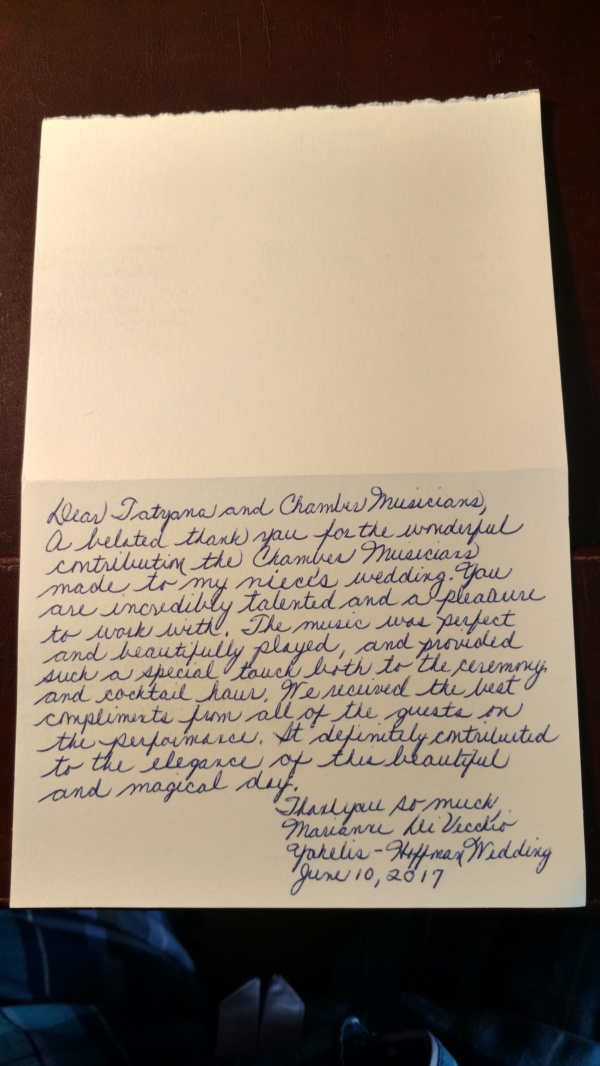 Dear Tatyana and Chamber Musicians,
A belated thank you for the wonderful
contribution the Chamber Musicians
made to my niece's wedding. You
are incredibly talented and a pleasure
to work with. The music was perfect
and beautifully played, and provided
such a special touch both to the ceremony
and cocktail hour. We received the best
compliments from all of the guests on
the performance. It definitely contributed
to the elegance of this beautiful
and magical day.
Thank you so much,
Marianne DiVecchio
Yakelis-Hoffman Wedding
June 10, 2017